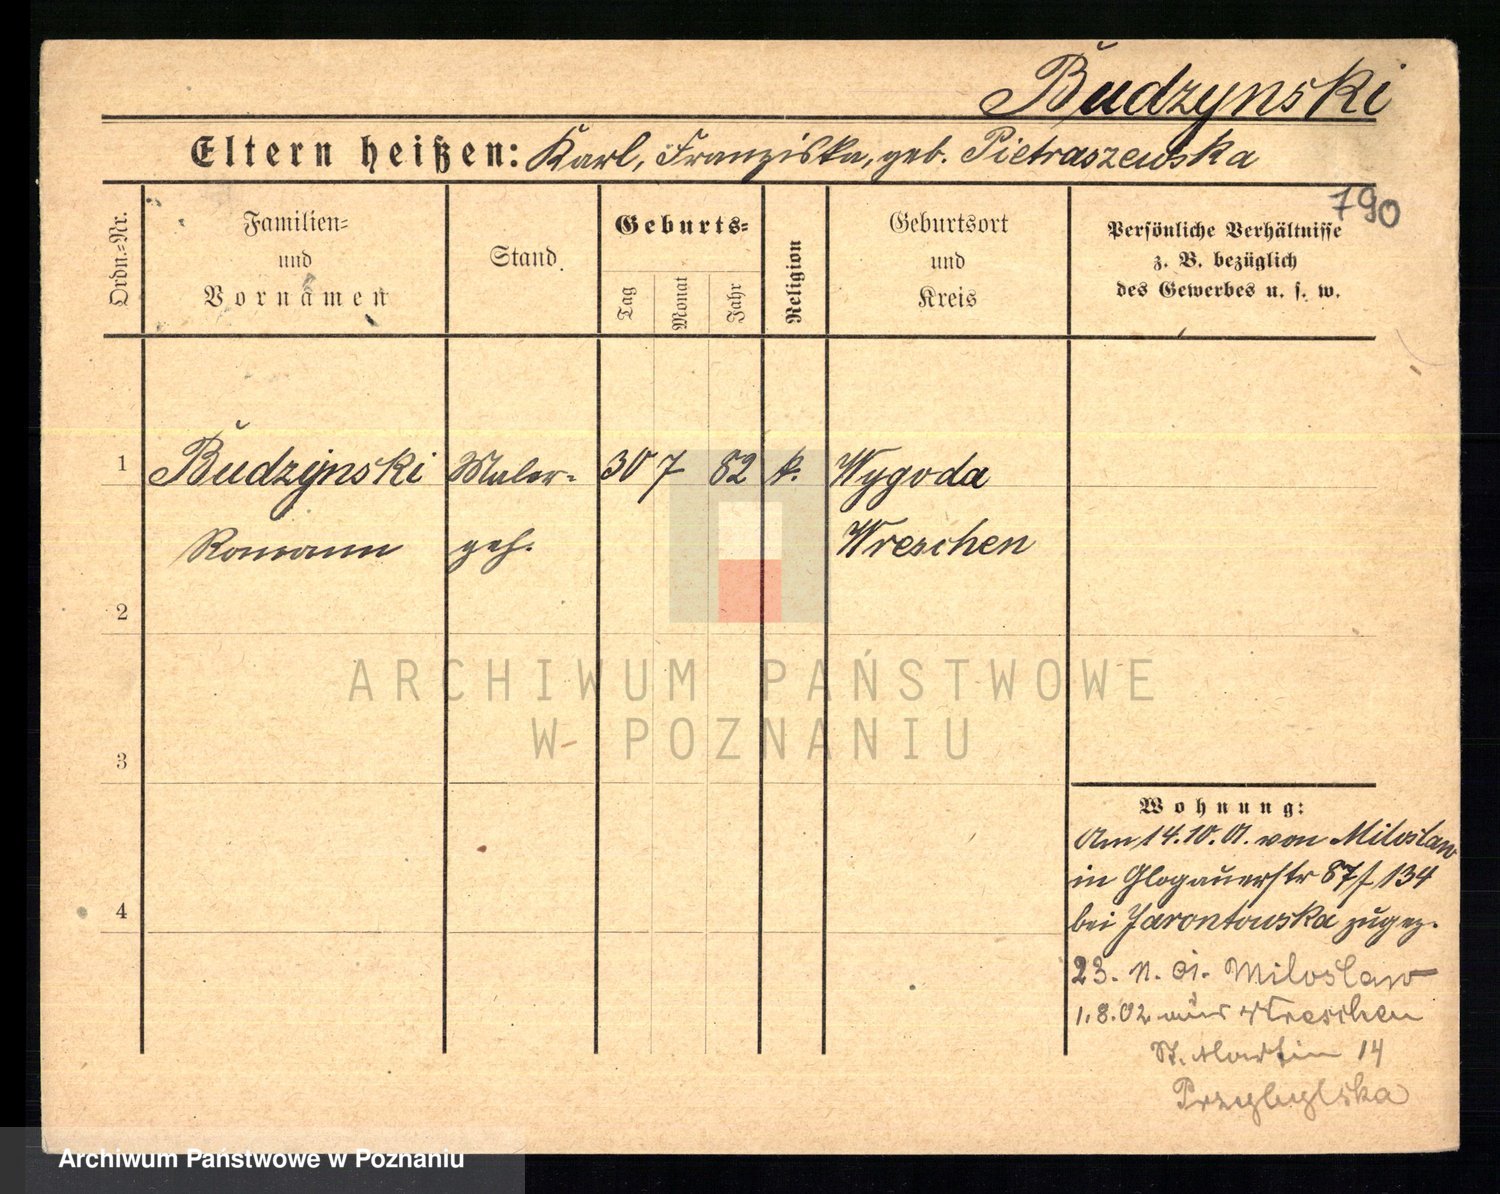 Budzynski
Eltern heißen: Karl, Franziska, geb. Pietraszewska
790
Ordn.=Nr.
Familien=
und
Vornamen
Stand.
Geburts=
Tag
Monat
Jahr
Religion
Geburtsort
und
Kreis
Persönliche Verhältnisse
z. B. bezüglich
des Gewerbes u. s. w.
1 Budzynski Maler= 30 7 82 k. Wygoda
Romann geh. Wreschen
2
3
4
ARCHIWUM PAŃSTWOWE
W POZNANIU
Wohnung:
Am 14.10.01. von Miloslaw
in Glogauerstr 87/134
bei Jarontowska zugez.
23. 11. 01. Miloslaw
1.8.02 aus Wreschen
St. Martin 14
Przybylska
Archiwum Państwowe w Poznaniu